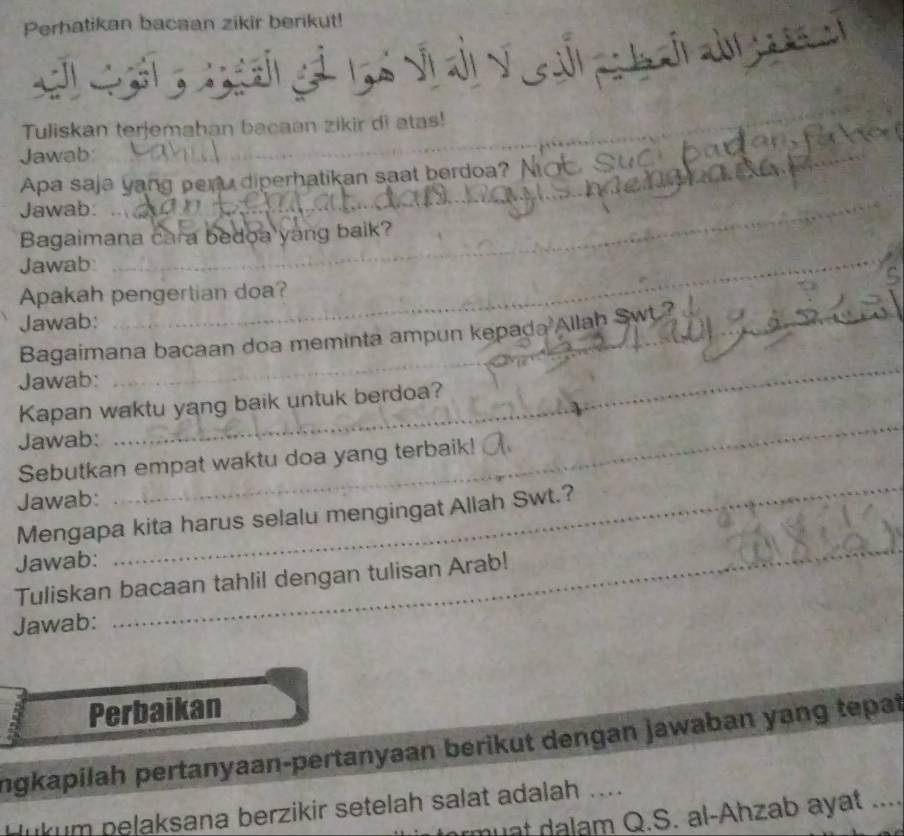 Perhatikan bacaan zikir berikut!
اَسْتَغْفِرُ اللهَ الْعَظِيْمَ الَّذِى لَا اِلٰهَ اِلَّا هُوَ الْحَيُّ الْقَيُّوْمُ وَ اَتُوْبُ اِلَيْهِ
Tuliskan terjemahan bacaan zikir di atas!
Jawab:
Apa saja yang perlu diperhatikan saat berdoa? Niat Suci badan, Pakaian
Jawab: dan tempat dan menghadap
Kekiblat
Bagaimana cara bedoa yang baik?
Jawab:
Apakah pengertian doa?
Jawab:
Bagaimana bacaan doa meminta ampun kepada Allah Swt.?
Jawab:
Kapan waktu yang baik untuk berdoa?
Jawab:
Sebutkan empat waktu doa yang terbaik!
Jawab:
Mengapa kita harus selalu mengingat Allah Swt.?
Jawab:
Tuliskan bacaan tahlil dengan tulisan Arab!
Jawab:
Perbaikan
ngkapilah pertanyaan-pertanyaan berikut dengan jawaban yang tepat
Hukum pelaksana berzikir setelah salat adalah ....
termuat dalam Q.S. al-Ahzab ayat ....